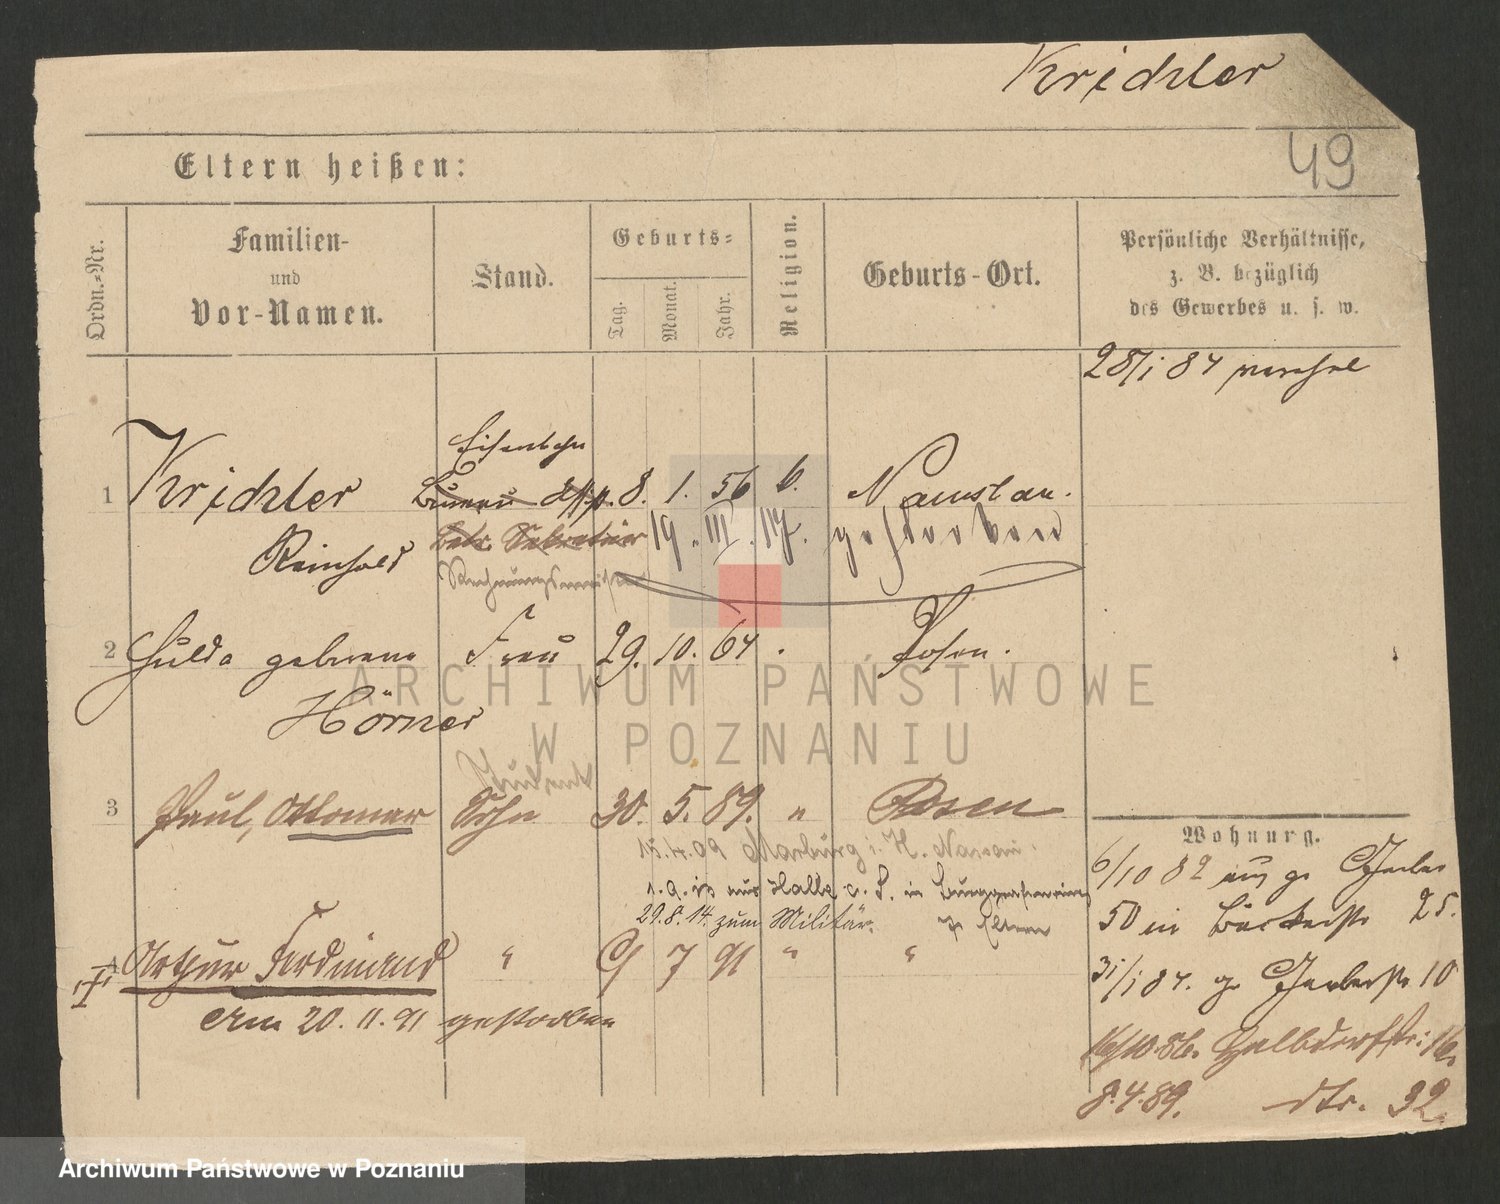 Krichler
49
Eltern heißen:
Ordn.-Nr.
Familien-
und
Vor-Namen.
Stand.
Geburts-
Tag.
Monat.
Jahr.
Religion.
Geburts-Ort.
Persönliche Verhältnisse,
z. B. bezüglich
des Gewerbes u. s. w.
28/1 84
Eisenbahn
1 Krichler Bureau 8. 1. 56 Namslau.
Reinhold Betr. Sekretär 19. III. 17. gestorben
2 Hulda geborene Frau 29. 10. 64 Posen.
Hörner
Student
3 Paul, Ottomar Sohn 30. 5. 89. " Posen
15.4.09 Marburg i. H. Nassau
aus Halle a. S. in
29.8.14. zum Militär. Eltern
Arthur Ferdinand " 9 7 91 " "
Am 20. 11. 91 gestorben
Wohnung.
6/10 82 aus gr Gerber
50 in Bäckerstr 25.
31/1 84. gr Gerberstr 10
16/10.86. Halbdorfstr: 16.
8.4.89. dto. 32.
ARCHIWUM PAŃSTWOWE
W POZNANIU
Archiwum Państwowe w Poznaniu